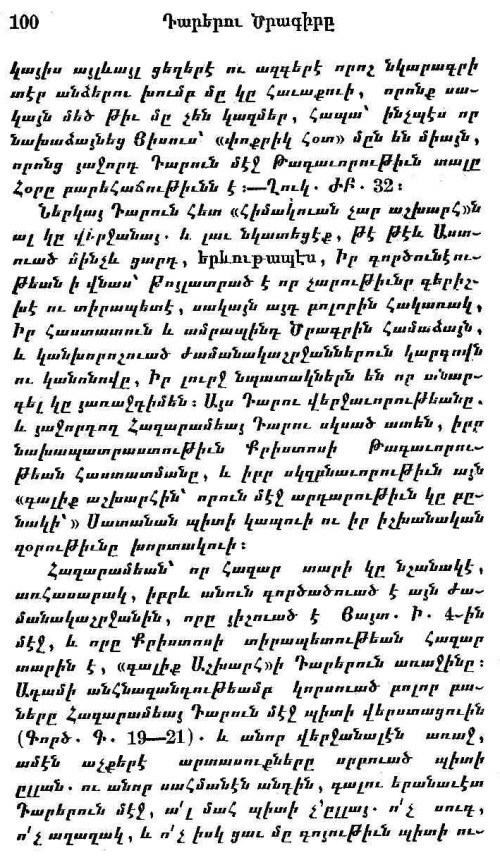 100 Դարերու Ծրագիրը
կայիս այլևայլ ցեղերէ ու ազգերէ որոշ նկարագրի
տէր անձերու խումբ մը կը հաւաքուի, որոնք սա-
կայն մեծ թիւ մը չեն կազմեր, հապա՝ ինչպէս որ
նախաձայնեց Յիսուս՝ «փոքրիկ հօտ» մըն են միայն,
որոնց յաջորդ Դարուն մէջ Թագաւորութիւն տալը
Հօրը բարեհաճութիւնն է:—Ղուկ. ԺԲ. 32:
Ներկայ Դարուն հետ «հիմակուան չար աշխարհ»ն
ալ կը վերջանայ. և լաւ նկատեցէք, թէ թէև Աստ-
ուած մինչև ցարդ, երևութապէս, Իր գործունէու-
թեան ի վնաս՝ թոյլատրած է որ չարութիւնը գերիշ-
խէ ու տիրապետէ, սակայն այդ բոլորին հակառակ,
Իր հաստատուն և ամրապինդ Ծրագրին համաձայն,
և կանխորոշուած ժամանակաշրջաններուն կարգովն
ու կանոնովը, Իր լուրջ նպատակներն են որ անար-
գել կը յառաջդիմեն: Այս Դարու վերջաւորութեանը.
և յաջորդող Հազարամեայ Դարու սկսած ատեն, իբր
նախապատրաստութիւն Քրիստոսի Թագաւորու-
թեան հաստատմանը, և իբր սկզբնաւորութիւն այն
«գալիք աշխարհին՝ որուն մէջ արդարութիւն կը բը-
նակի՝» Սատանան պիտի կապուի ու իր իշխանական
զօրութիւնը խորտակուի:
Հազարամեան՝ որ հազար տարի կը նշանակէ,
առհասարակ, իբրև անուն գործածուած է այն ժա-
մանակաշրջանին, որը յիշուած է Յայտ. Ի. 4—ին
մէջ, և որը Քրիստոսի տիրապետութեան հազար
տարին է, «գալիք Աշխարհ»ի Դարերուն առաջինը:
Ադամի անհնազանդութեամբ կորսուած բոլոր բա-
ները Հազարամեայ Դարուն մէջ պիտի վերստացուին
(Գործ. Գ. 19—21). և անոր վերջանալէն առաջ,
ամէն աչքերէ արտասուքները սրբուած պիտի
ըլլան. ու անոր սահմանէն անդին, գալու երանաւէտ
Դարերուն մէջ, ա՛լ մահ պիտի չ՚ըլլայ. ո՛չ սուգ,
ո՛չ աղաղակ, և ո՛չ իսկ ցաւ մը գոյութիւն պիտի ու-